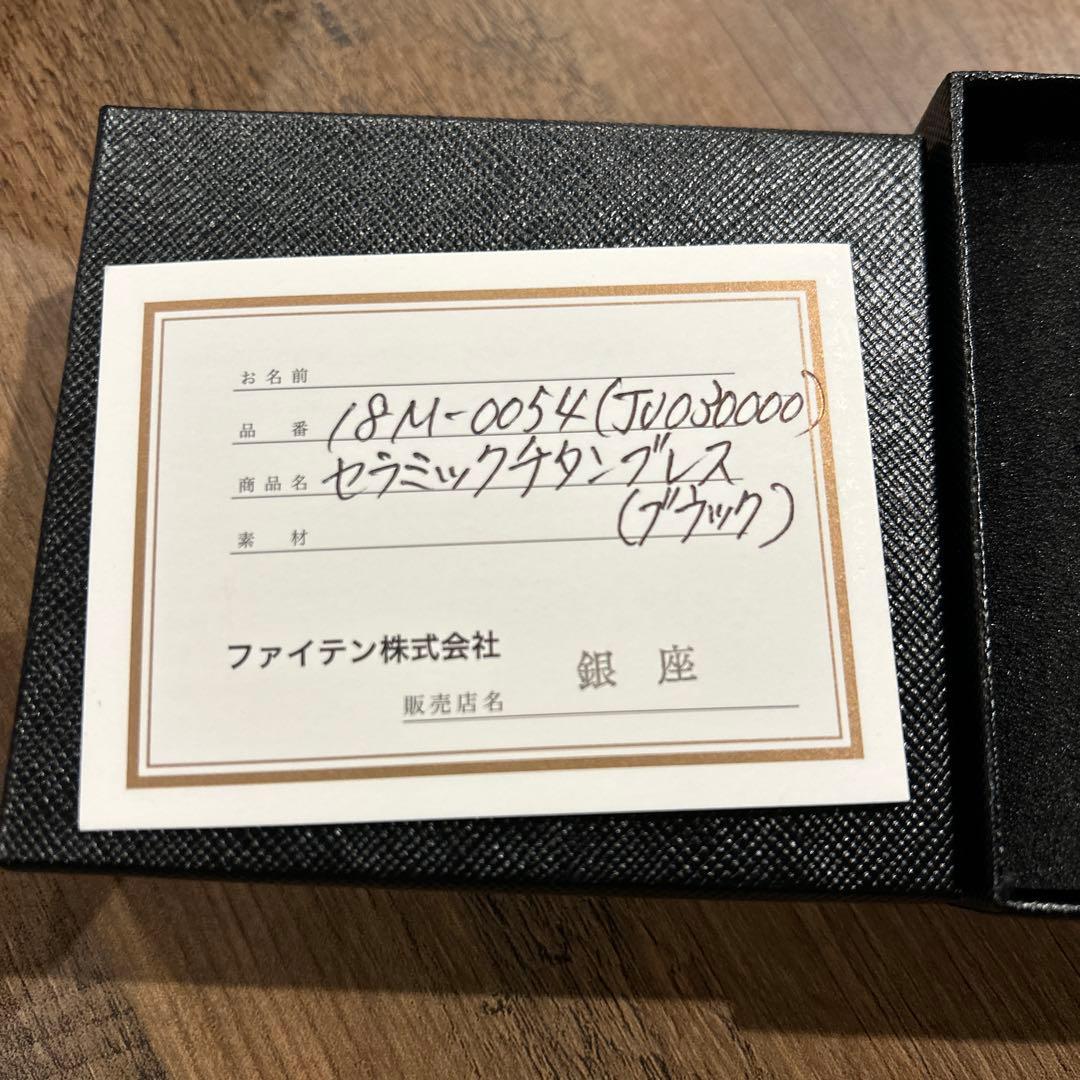 お名前
品番 18M-0054(JU030000)
商品名 セラミックチタンブレス
(ブラック)
素材
ファイテン株式会社
販売店名 銀座